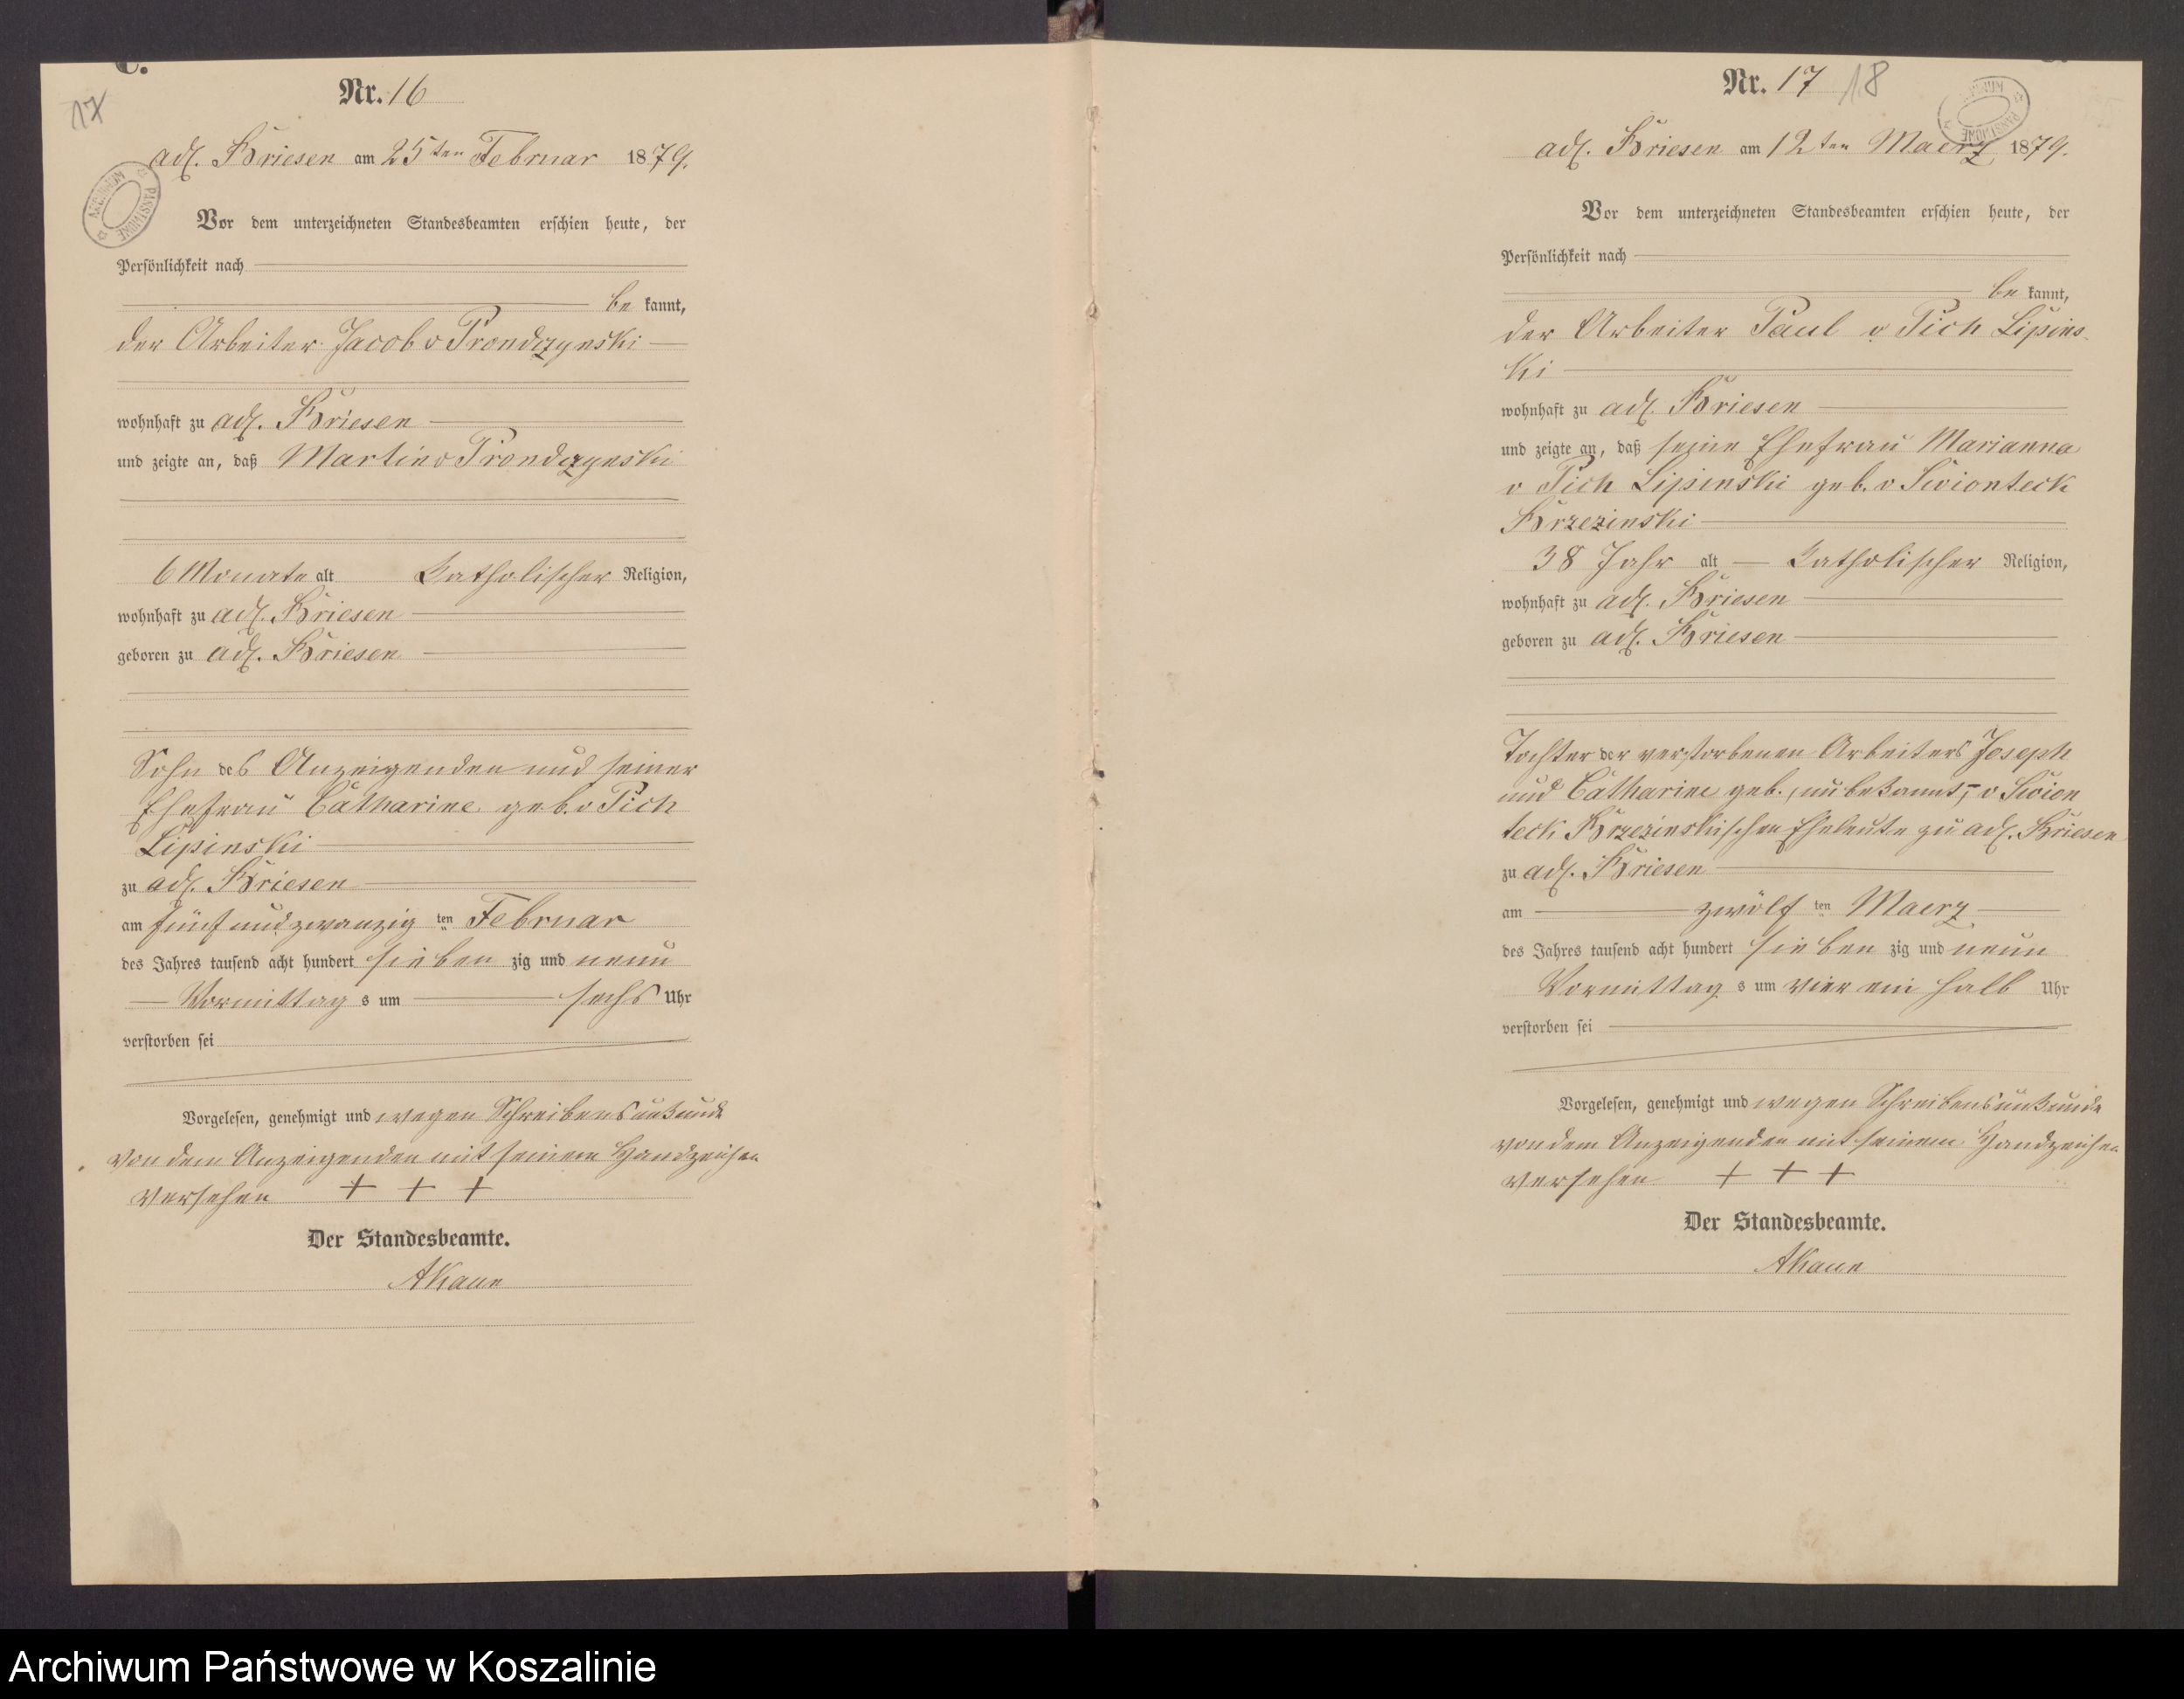 C.
Nr. 16
17
adl. Briesen am 25ten Februar 1879.
ARCHIWUM PAŃSTWOWE
Vor dem unterzeichneten Standesbeamten erschien heute, der
Persönlichkeit nach
be kannt,
der Arbeiter Jacob v Prondzynski
wohnhaft zu adl. Briesen
und zeigte an, daß Martin v Prondzynski
6 Monate alt Katholischer Religion,
wohnhaft zu adl. Briesen
geboren zu adl. Briesen
Sohn des Anzeigenden und seiner
Ehefrau Catharine geb. v Pich
Lipinski
zu adl. Briesen
am fünf und zwanzig ten Februar
des Jahres tausend acht hundert sieben zig und neun
Vormittag s um sechs Uhr
verstorben sei
Vorgelesen, genehmigt und wegen Schreibensunkunde
von dem Anzeigenden mit seinem Handzeichen
versehen + + +
Der Standesbeamte.
Nr. 17 18
adl. Briesen am 12ten Maerz 1879.
Vor dem unterzeichneten Standesbeamten erschien heute, der
Persönlichkeit nach
be kannt,
der Arbeiter Paul v Pich Lipins-
ki
wohnhaft zu adl. Briesen
und zeigte an, daß seine Ehefrau Marianna
v Pich Lipinski geb. v Swionteck
Brzezinski
38 Jahr alt — Katholischer Religion,
wohnhaft zu adl. Briesen
geboren zu adl. Briesen
Tochter der verstorbenen Arbeiters Joseph
und Catharine geb., unbekannt, v Swion
teck Brzezinskischen Eheleute zu adl. Briesen
zu adl. Briesen
am zwölf ten Maerz
des Jahres tausend acht hundert sieben zig und neun
Vormittag s um vier ein halb Uhr
verstorben sei
Vorgelesen, genehmigt und wegen Schreibensunkunde
von dem Anzeigenden mit seinem Handzeichen
versehen + + +
Der Standesbeamte.
Archiwum Państwowe w Koszalinie